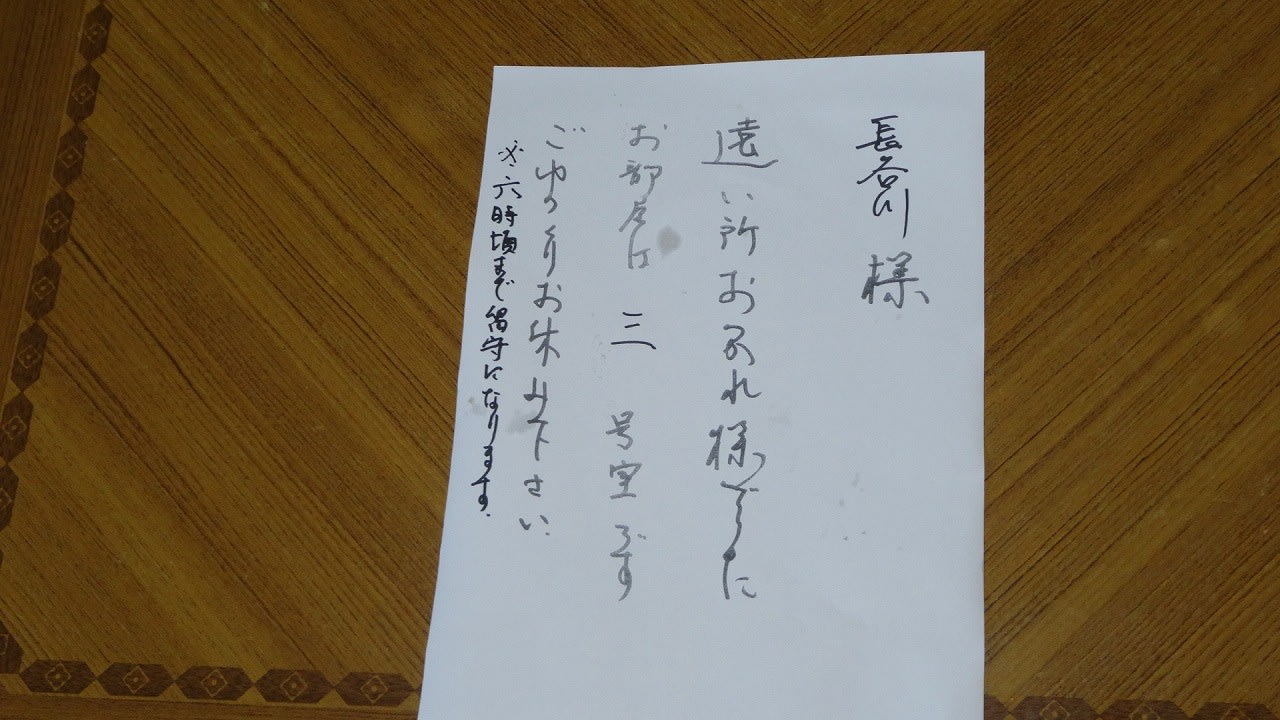 長谷川様
遠い所おつかれ様でした
お部屋は 三 号室です
ごゆっくりお休み下さい
※六時頃まで留守になります.